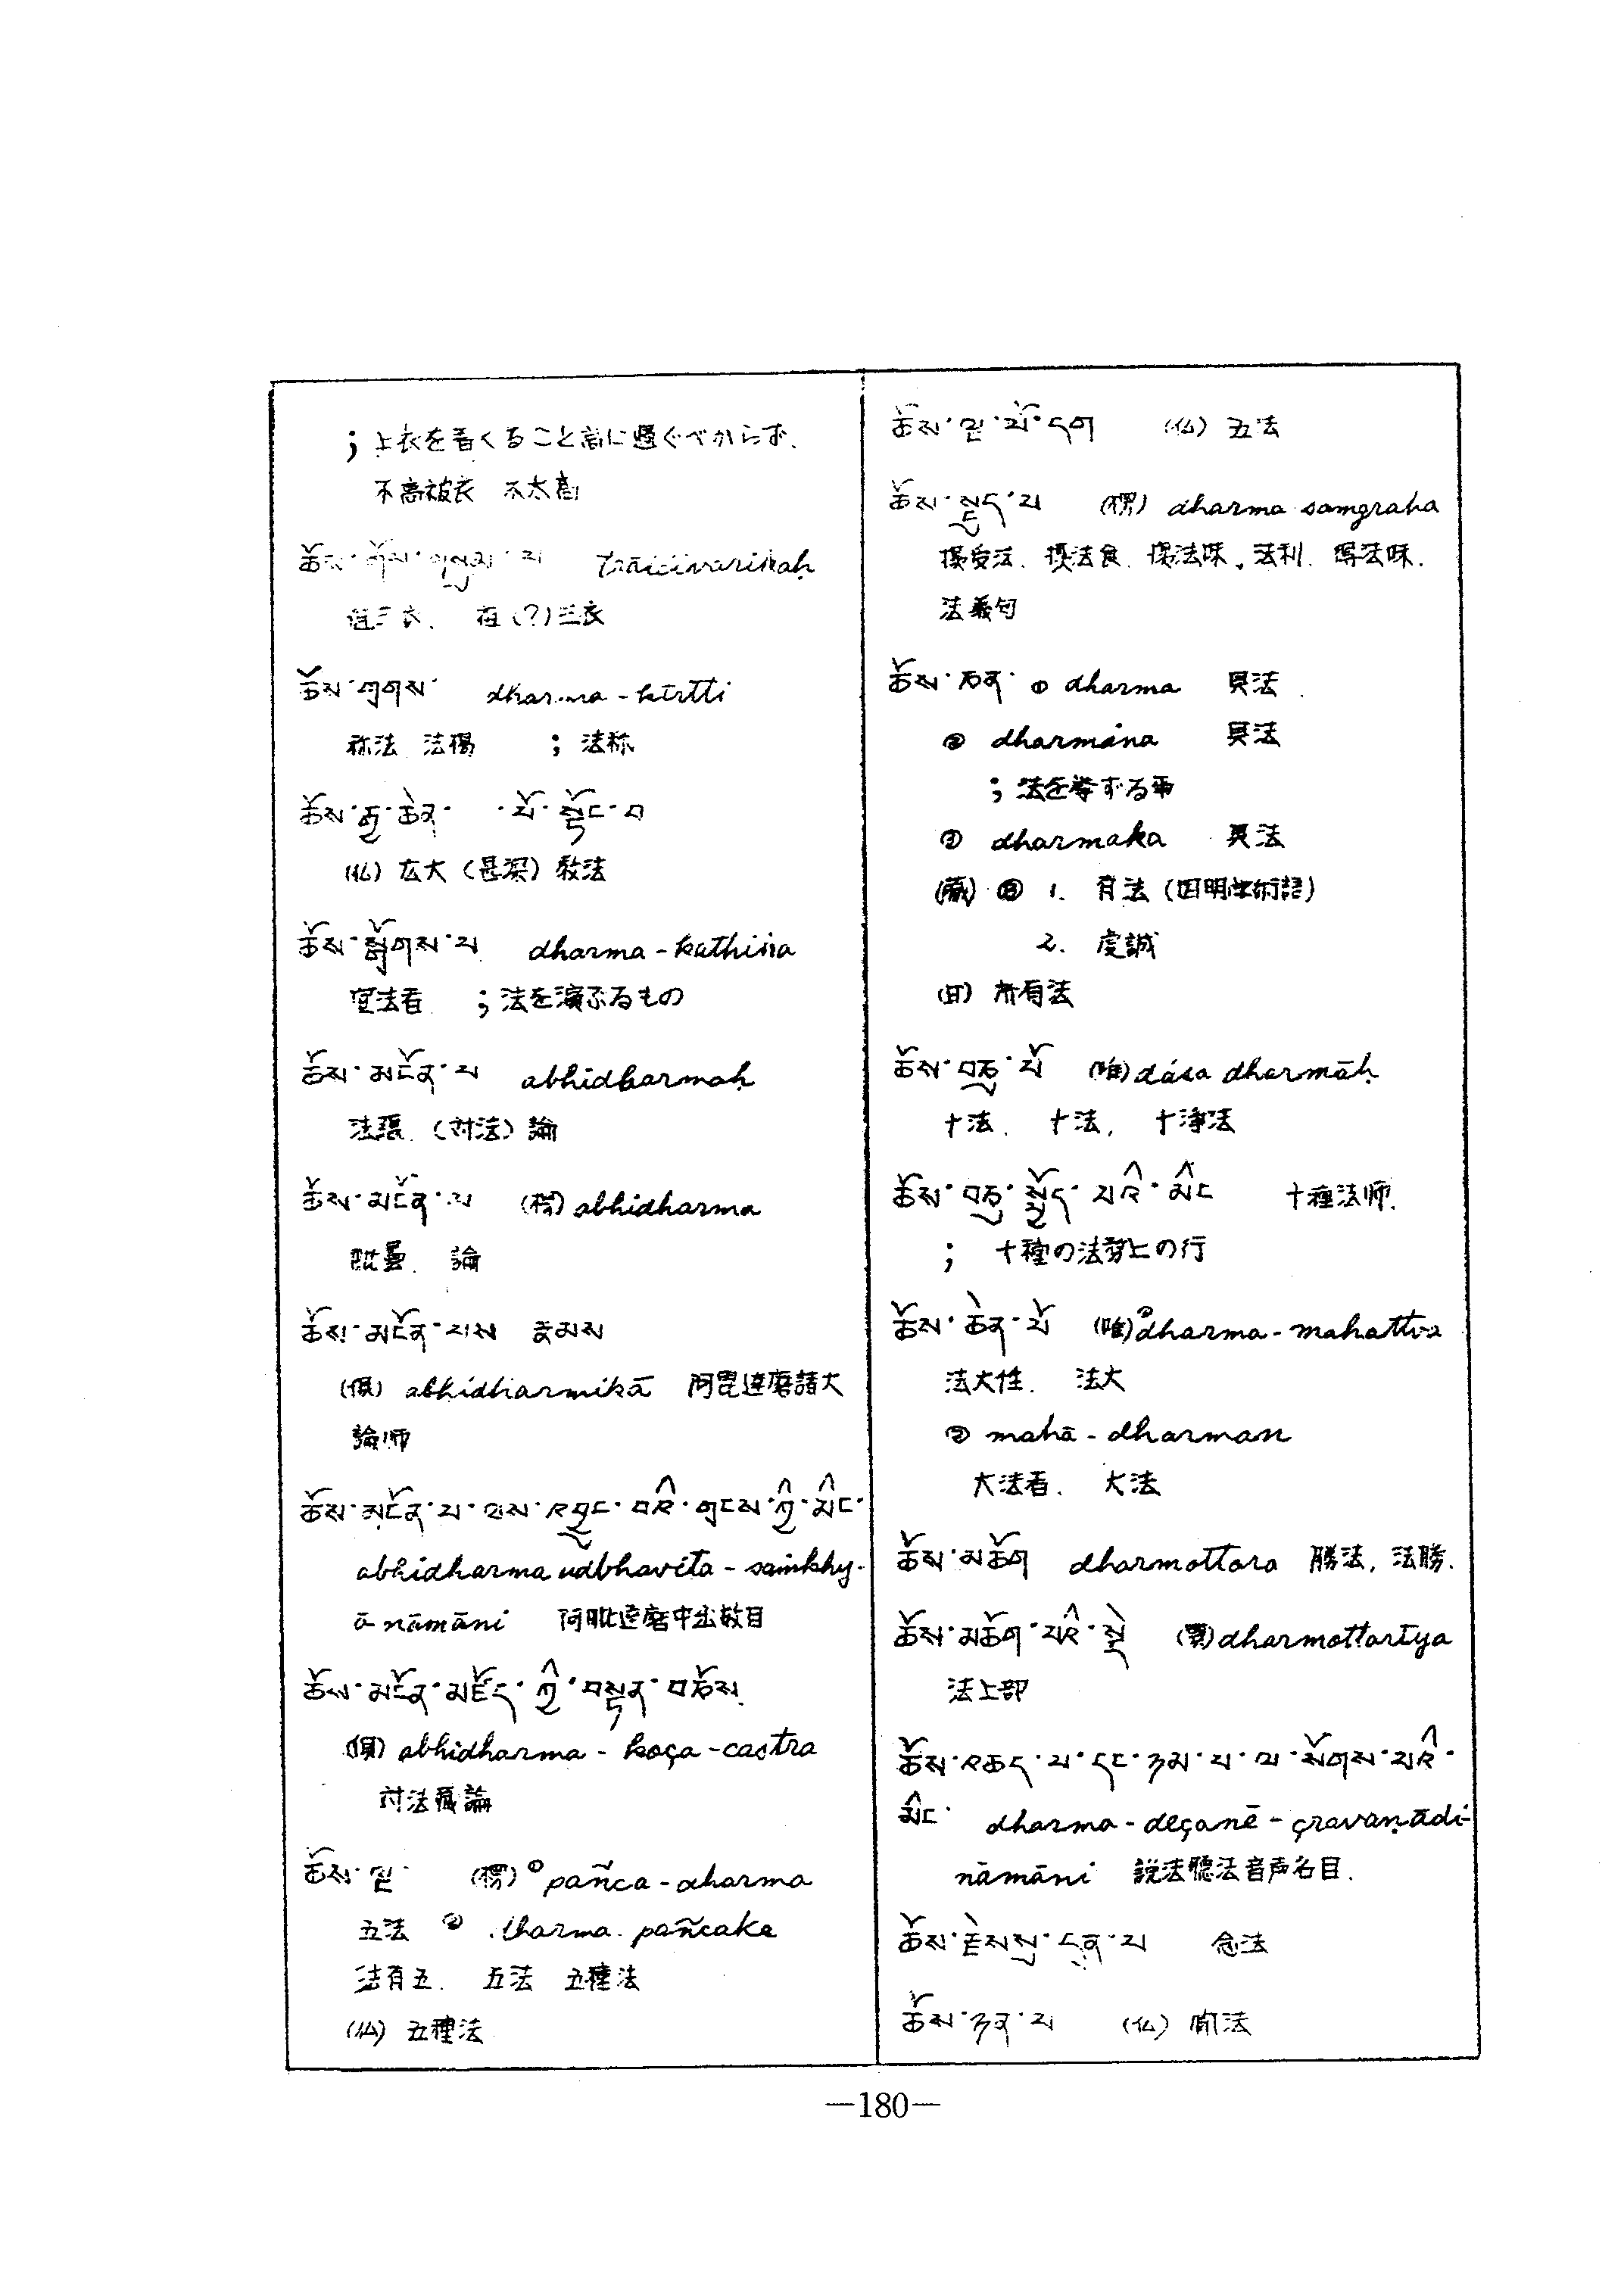 ; 上衣を着くること高に過ぐべからず、
不高被衣 不太高
ཆོས་གོས་གསུམ་པ traicivarikaḥ
但三衣、 在(?)三衣
ཆོས་གྲགས་ dharma-kīrtti
称法 法楊 ; 法称
ཆོས་རྒྱ་ཆེན་ ་པོ་སྟོང་བ
(仏) 広大(甚深)教法
ཆོས་སྨྲོགས་པ dharma-kathina
宣法者 ; 法を演ぶるもの
ཆོས་མངོན་པ abhidharmaḥ
(対法)論
ཆོས་མངོན་པ (楞) abhidharma
毗曇、 論
ཆོས་མངོན་པས རྣམས
(倶) abhidharmikā 阿毘達磨諸大
論师
ཆོས་མངོན་པ་ལས་འབྱུང་བའི་གྲངས་ཀྱི་མིང་
abhidharma udbhavita-saṁkhy-
ā nāmāni 阿毗達磨中出数目
ཆོས་མངོན་མཛོད་ཀྱི་བསྟན་བཅོས
(倶) abhidharma-koça-castra
対法蔵論
ཆོས་ལྔ་ (楞) ① pañca-dharma
五法 ② dharma-pañcake
法有五、 五法 五種法
(仏) 五種法
ཆོས་ལྔ་པོ་དག (仏) 五法
ཆོས་སྡུད་པ (楞) dharma samgraha
摂受法、 摂法食、 摂法味。法利、 得法味、
法義句
ཆོས་ཅན་ ① dharma 異法
② dharmāna 異法
; 法を挙ずる事
③ dharmaka 異法
(蔵) 1. 有法(因明学術語)
2. 虔誠
(日) 所有法
ཆོས་བཅུ་པོ (唯) dása dharmāḥ
十法、 十法, 十浄法
ཆོས་བཅུ་སྤྱོད་པའི་མིང 十種法师、
; 十種の法務上の行
ཆོས་ཆེན་པོ (唯) ① dharma-mahattva
法大性、 法大
② mahā-dharman
大法者、 大法
ཆོས་མཆོག dharmottara 勝法, 法勝、
ཆོས་མཆོག་པའི་སྡེ dharmottarīya
法上部
ཆོས་འཆད་པ་དང་ཉམ་པ་ལ་སོགས་པའི་
མིང་ dharma-deçanē-çravaṇādi-
nāmāni 説法聴法音声名目、
ཆོས་རྗེས་སུ་དྲན་པ 念法
ཆོས་ཉན་པ (仏) 聞法
—180—